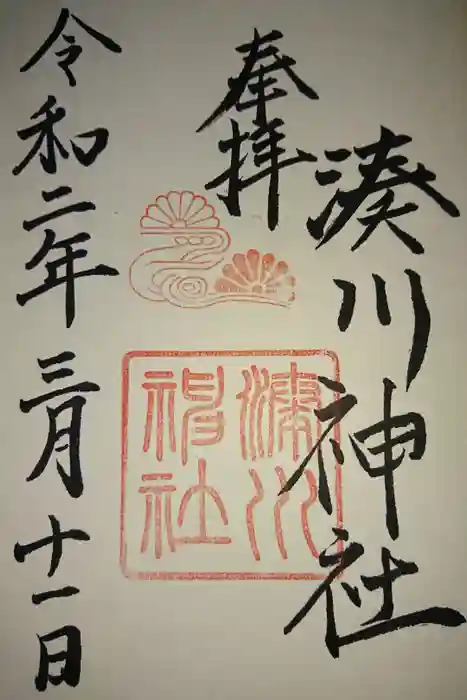 奉拝
湊川神社
湊川神社
令和二年三月十一日